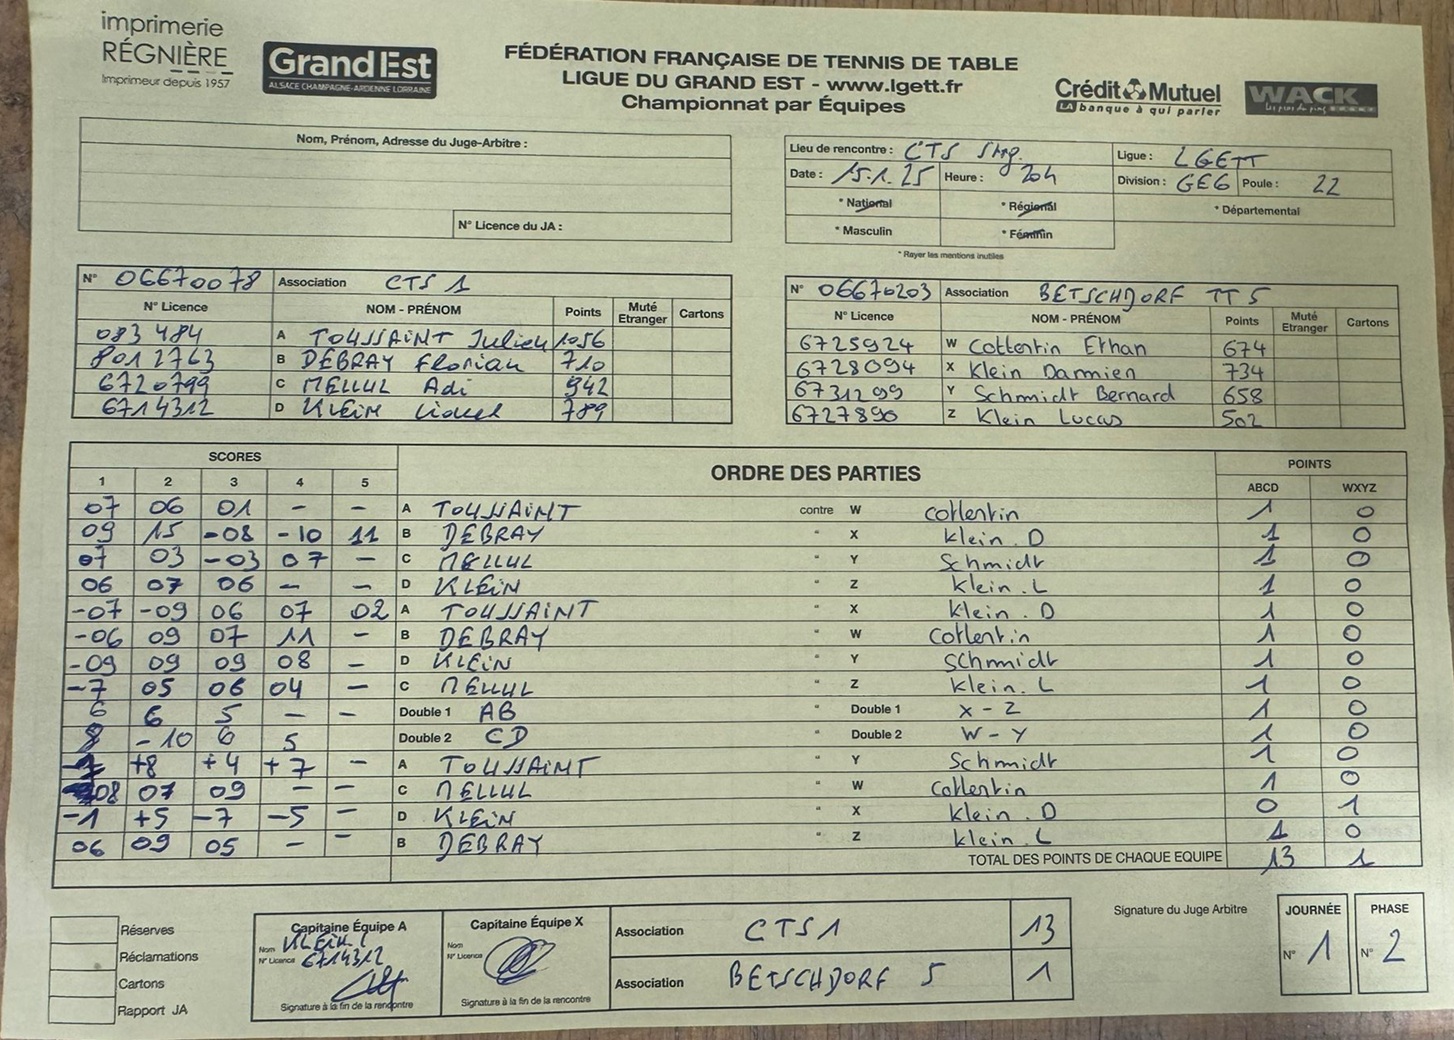 imprimerie
RÉGNIÈRE
Imprimeur depuis 1957
GrandEst
ALSACE CHAMPAGNE-ARDENNE LORRAINE
FÉDÉRATION FRANÇAISE DE TENNIS DE TABLE
LIGUE DU GRAND EST - www.lgett.fr
Championnat par Équipes
Crédit Mutuel
LA banque à qui parler
WACK
Les pros du ping
Nom, Prénom, Adresse du Juge-Arbitre :
N° Licence du JA :
Lieu de rencontre : CTS Stbg. Ligue : LGETT
Date : 15.1.25 Heure : 20h Division : GE6 Poule : 22
* National * Régional * Départemental
* Masculin * Féminin
* Rayer les mentions inutiles
N° 06670078 Association CTS 1
N° Licence NOM - PRÉNOM Points Muté Etranger Cartons
083484 A TOUSSAINT Julien 1056
8012763 B DEBRAY Florian 710
6720799 C MELLUL Adi 942
6714312 D KLEIN Lionel 789
N° 06670203 Association BETSCHDORF TT 5
N° Licence NOM - PRÉNOM Points Muté Etranger Cartons
6725924 W Cottentin Ethan 674
6728094 X Klein Damien 734
6731299 Y Schmidt Bernard 658
6727890 Z Klein Lucas 502
SCORES ORDRE DES PARTIES POINTS
1 2 3 4 5 ABCD WXYZ
07 06 01 - - A TOUSSAINT contre W Cottentin 1 0
09 15 -08 -10 11 B DEBRAY " X Klein.D 1 0
07 03 -03 07 - C MELLUL " Y Schmidt 1 0
06 07 06 - - D KLEIN " Z Klein.L 1 0
-07 -09 06 07 02 A TOUSSAINT " X Klein.D 1 0
-06 09 07 11 - B DEBRAY " W Cottentin 1 0
-09 09 09 08 - D KLEIN " Y Schmidt 1 0
-7 05 06 04 - C MELLUL " Z Klein.L 1 0
6 6 5 - - Double 1 AB " Double 1 X-Z 1 0
8 -10 6 5 Double 2 CD " Double 2 W-Y 1 0
+8 +4 +7 - A TOUSSAINT " Y Schmidt 1 0
08 07 09 - - C MELLUL " W Cottentin 1 0
-1 +5 -7 -5 - D KLEIN " X Klein.D 0 1
06 09 05 - - B DEBRAY " Z Klein.L 1 0
TOTAL DES POINTS DE CHAQUE EQUIPE 13 1
Réserves
Réclamations
Cartons
Rapport JA
Capitaine Équipe A
Nom KLEIN L
N° Licence 6714312
Signature à la fin de la rencontre
Capitaine Équipe X
Nom
N° Licence
Signature à la fin de la rencontre
Association CTS 1 13
Association BETSCHDORF 5 1
Signature du Juge Arbitre
JOURNÉE
N° 1
PHASE
N° 2